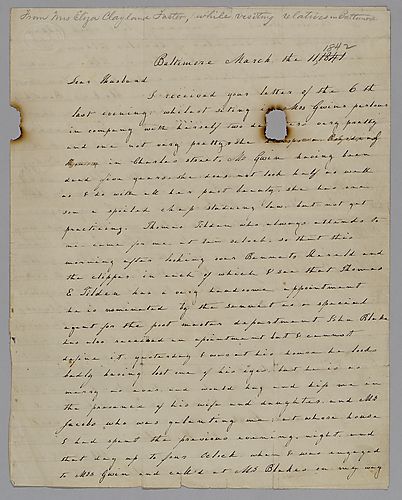 From Mrs Eliza Clayland Foster, while visiting relatives in Baltimore
1842
Baltimore March the 11, 1841
Dear Husband
I received your letter of the 6th
last evening whilst siting in Mrs Gwins parlour
in company with herself two very pretty
and one not very pretty she
in Charles street, Mr Gwin having been
dead five years she does not look half as well
as I do with all her past beauty, she has one
son a spoiled chap studeing law but not yet
practicing. Thomas Tilden who always attends to
me came for me at ten oclock, so that this
morning after looking over Bennets Herald and
the clipper in each of which I see that Thomas
E Tilden has a very handsome appointment
he is nominated by the as a special
agent for the post master department John Blake
has also received an apointment but I cannot
define it yesterday I was at his house he looks
badly having lost one of his eyes, but he is as
merry as ever and would hug and kiss me in
the presence of his wife and daughter, and Mr
Jacobs who was galanting me, at whose house
I had spent the previous evening, night, and
that day up to four oclock when I was engaged
to Mrs Gwin and called at Mr Blakes on my way